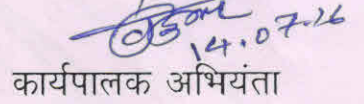 14.07.26
कार्यपालक अभियंता